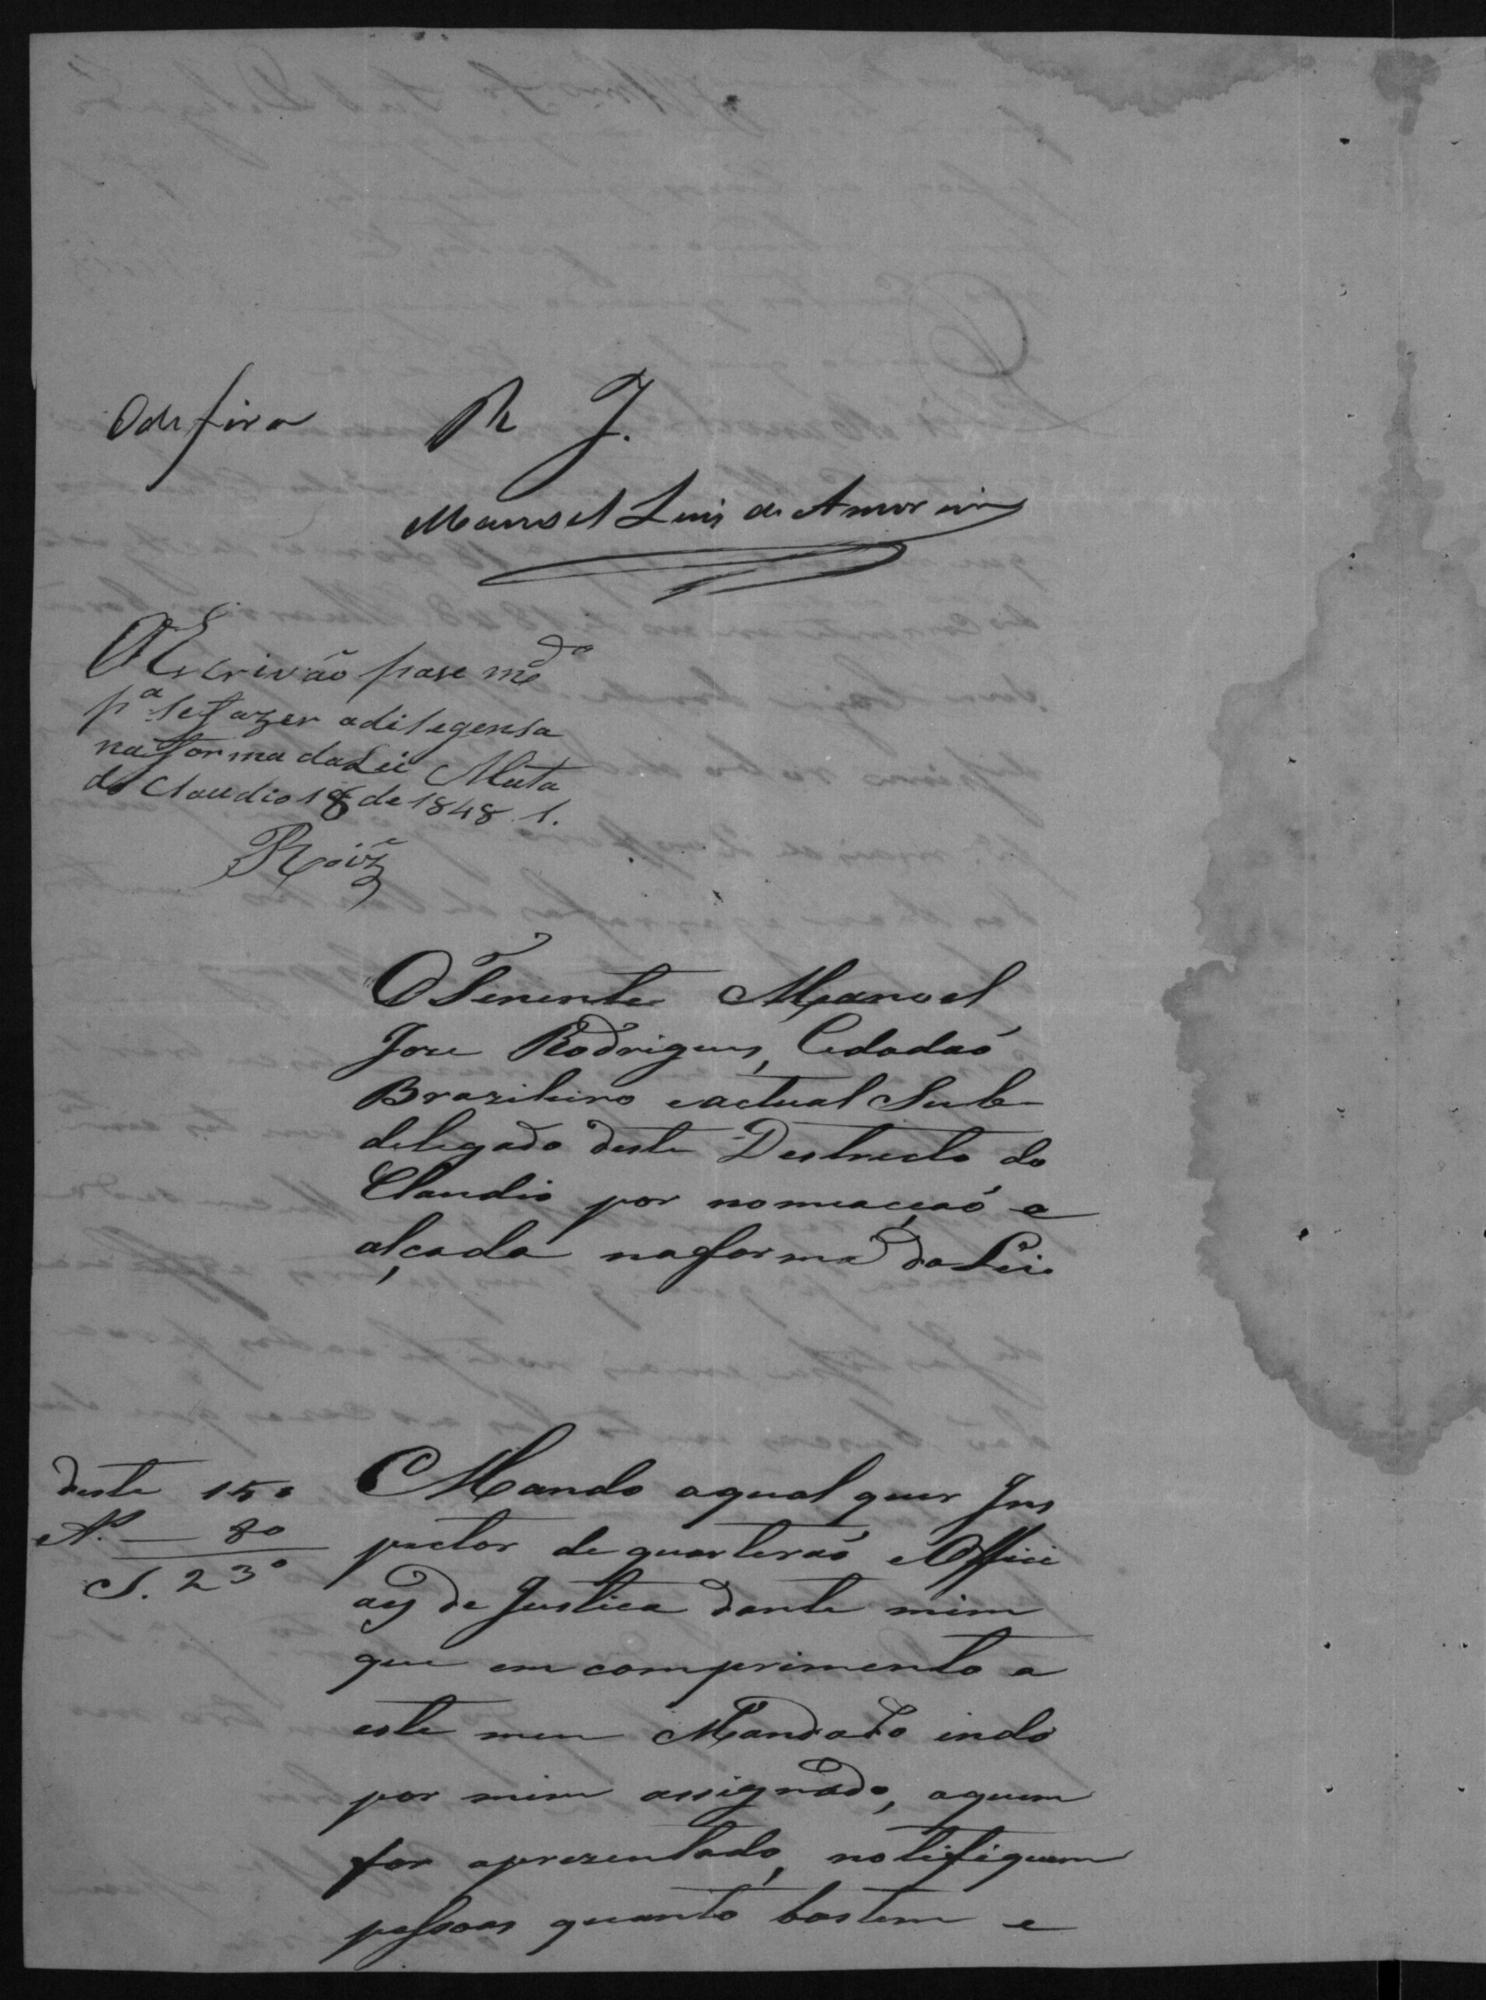 Odefira R J.
Manoel Luis de Amorim
O Escrivão pase m.do
p.a se fazer adilegensa
na forma da Lei Mata
do Claudio 18 de 1848. 1.
Roiz
O Tenente Manoel
Joze Rodrigues, Cidadaó
Brazileiro e actual Sub
delegado deste Destrecto do
Claudio por nomeaçaó e
alçada na forma da Lei.
deste 150
N.o — 80
S. 230
Mando aqual quer Ins
pector de quarteraó e Offici
aes de Justica dante mim
que em comprimento a
este meu Mandado indo
por mim assignado, aquem
for aprezentado, notifiquem
pessoas quanto bastem e